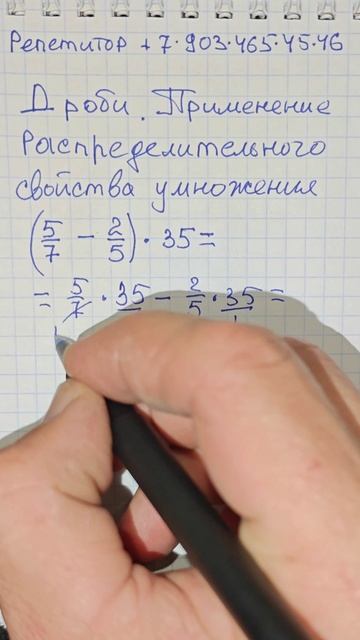 Репетитор +7·903·465·45·46
Дроби. Применение
Распределительного
свойства умножения
(5/7 − 2/5) · 35 =
= 5/7 · 35 − 2/5 · 35/1 =